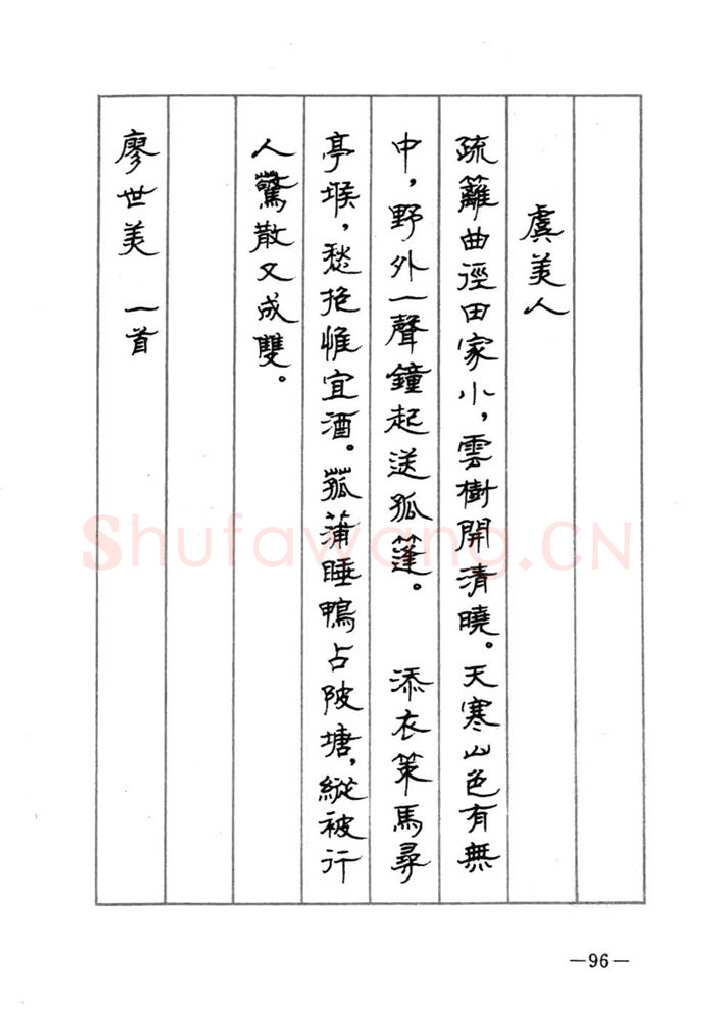 虞美人
疏籬曲徑田家小，雲樹開清曉。天寒山色有無
中，野外一聲鐘起送孤篷。　添衣策馬尋
亭堠，愁抱惟宜酒。菰蒲睡鴨占陂塘，縱被行
人驚散又成雙。
廖世美　一首
—96—
Shufawang.CN